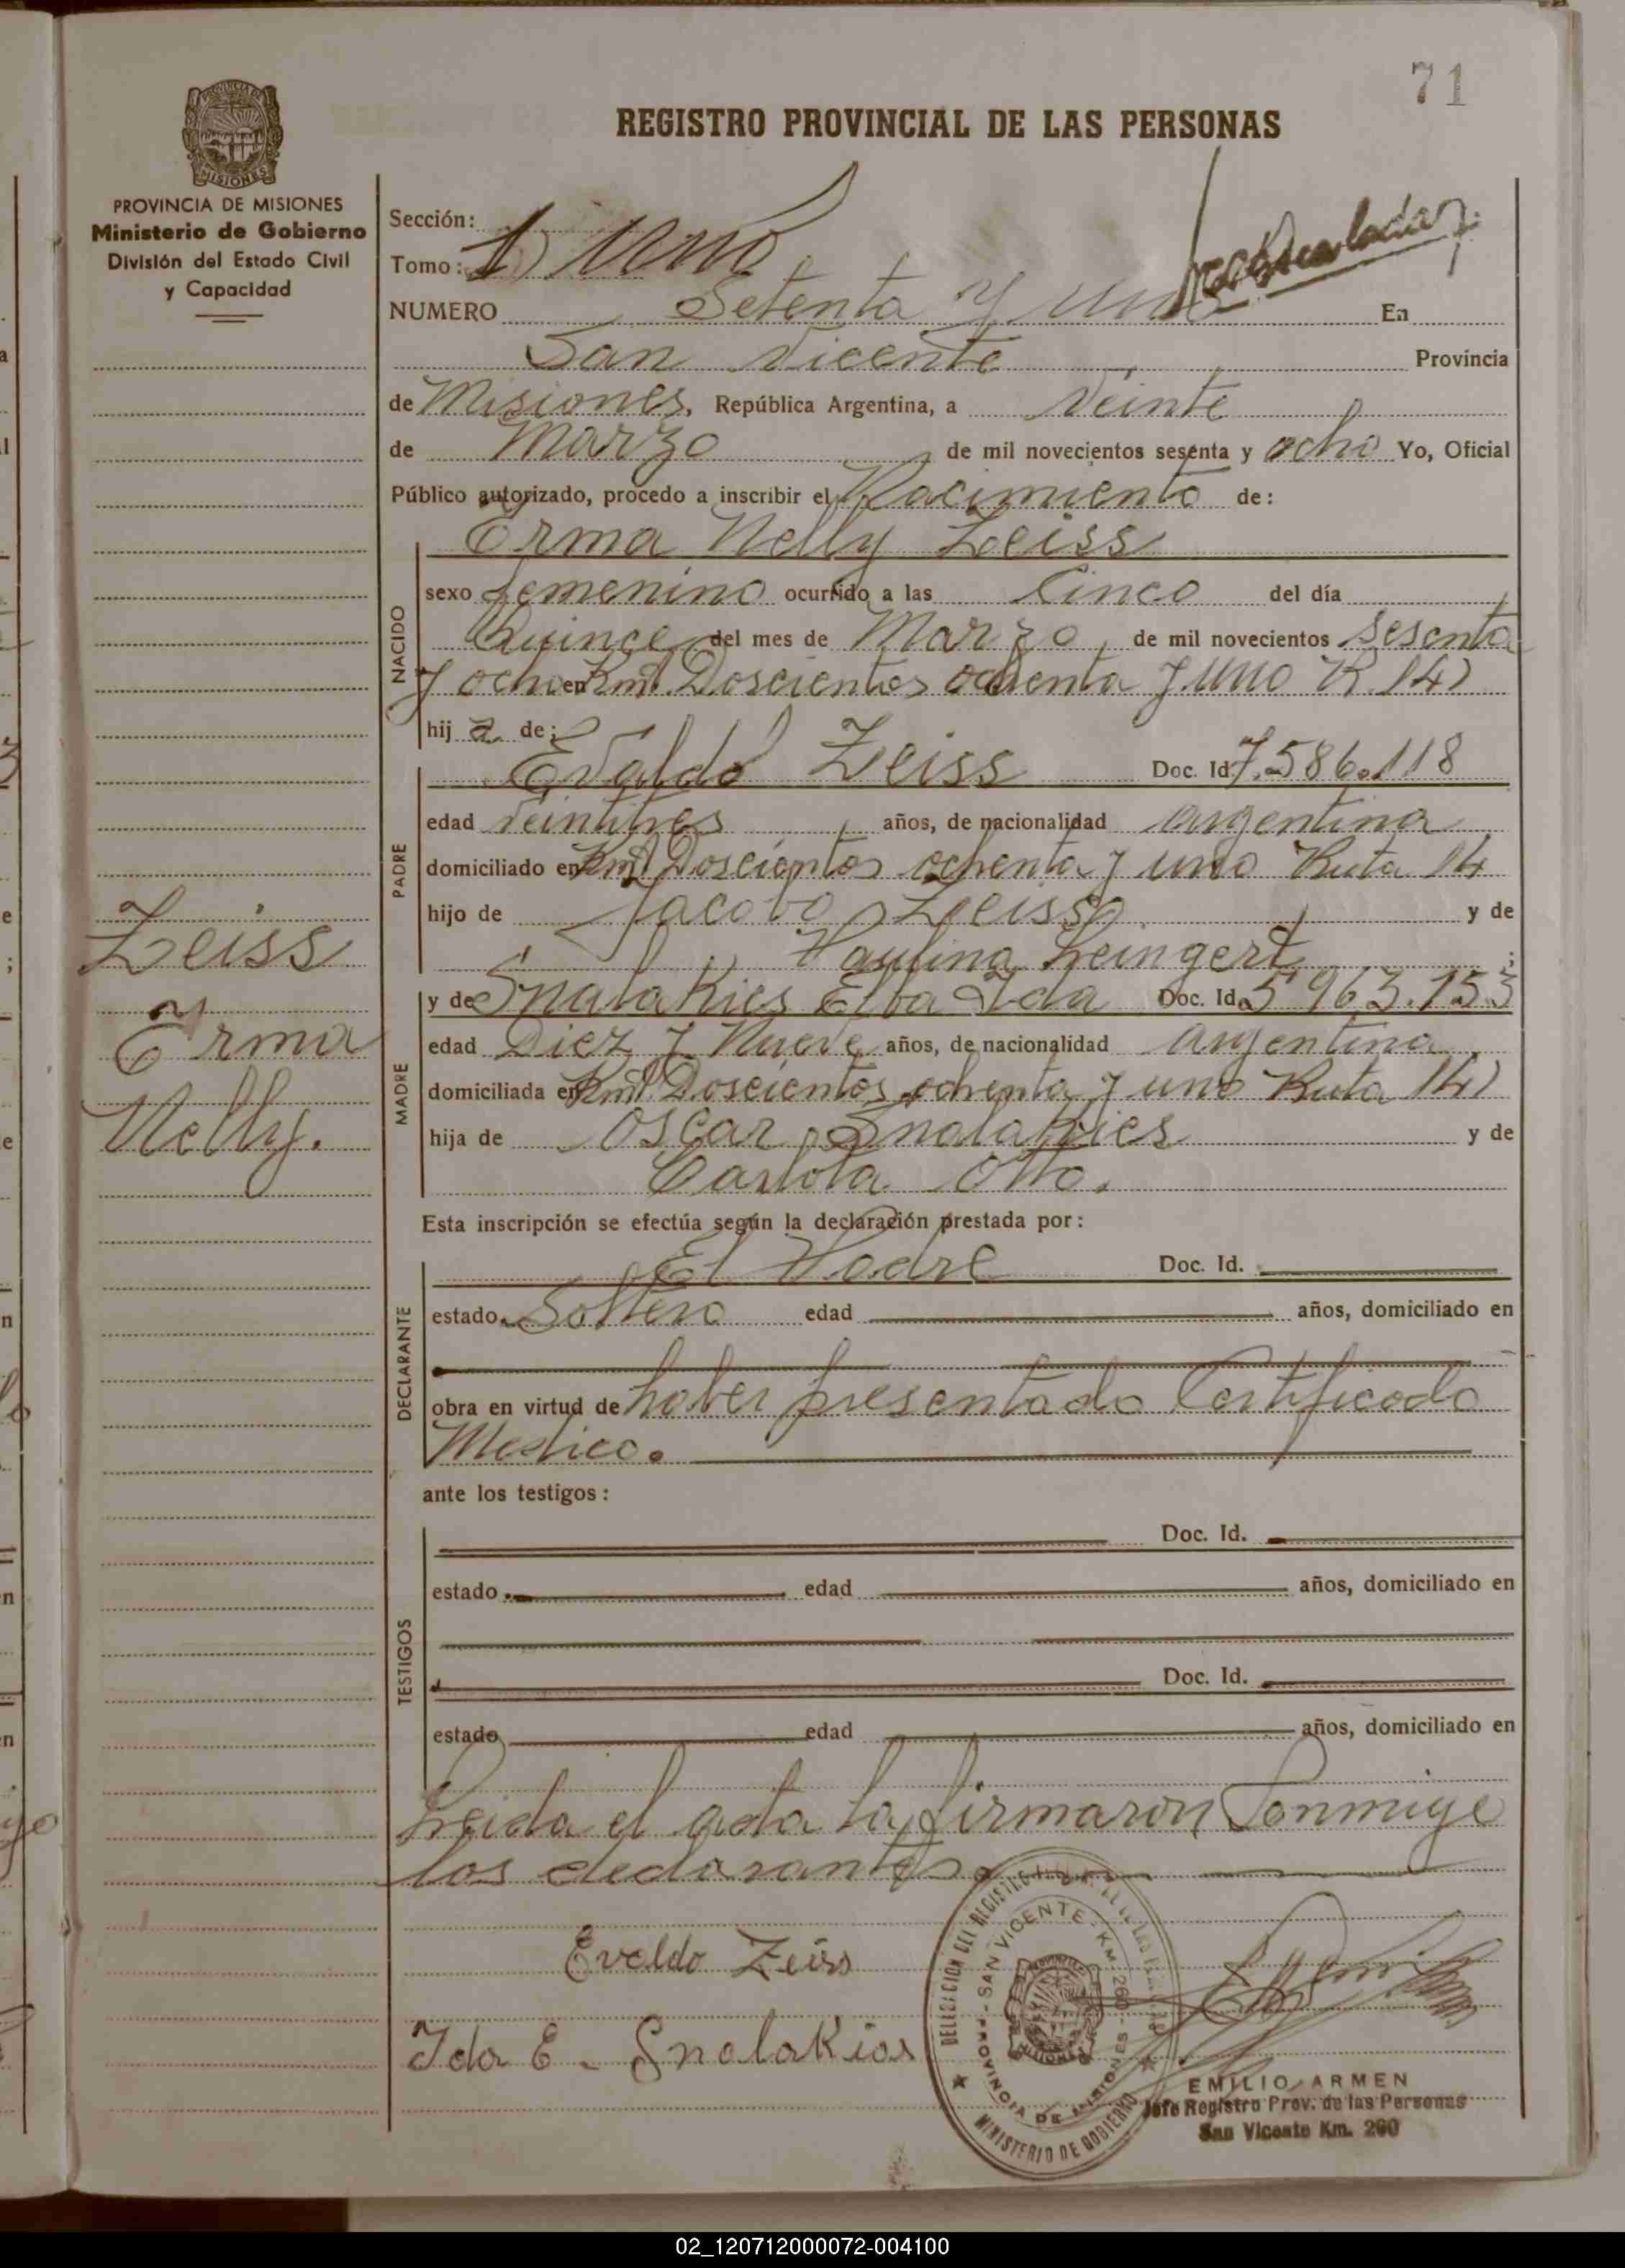 71
REGISTRO PROVINCIAL DE LAS PERSONAS
PROVINCIA DE MISIONES
Ministerio de Gobierno
División del Estado Civil
y Capacidad
Sección:
Tomo: 1) uno
NUMERO Setenta y uno En
San Vicente Provincia
de Misiones, República Argentina, a Veinte
de Marzo de mil novecientos sesenta y ocho Yo, Oficial
Público autorizado, procedo a inscribir el Nacimiento de:
Erma Nelly Zeiss
NACIDO
sexo femenino ocurrido a las Cinco del día
Quince del mes de Marzo, de mil novecientos sesenta
y ocho en Km. Doscientos ochenta y uno R. 14)
hij a de:
PADRE
Evaldo Zeiss Doc. Id. 7.586.118
edad Veintitres años, de nacionalidad argentina
domiciliado en Km. Doscientos ochenta y uno Ruta 14
hijo de Jacobo Zeiss y de
Paulina Leingert ;
Zeiss
Erma
Nelly.
MADRE
y de Snalakies Elba Ida Doc. Id. 5 963.153
edad Diez y Nueve años, de nacionalidad argentina
domiciliada en Km. Doscientos ochenta y uno Ruta 14)
hija de Oscar Snalakies y de
Carlota Otto.
Esta inscripción se efectúa según la declaración prestada por:
DECLARANTE
El Padre Doc. Id.
estado Soltero edad años, domiciliado en
obra en virtud de haber presentado Certificado
Medico.
ante los testigos:
TESTIGOS
Doc. Id.
estado edad años, domiciliado en
Doc. Id.
estado edad años, domiciliado en
Leida el acta la firmaron Conmigo
los declarantes.
Evaldo Zeiss
Ida E. Snalakies
SAN VICENTE - KM. 260 - PROVINCIA DE MISIONES
MINISTERIO DE GOBIERNO
EMILIO ARMEN
Jefe Registro Prov. de las Personas
San Vicente Km. 260
02_120712000072-004100